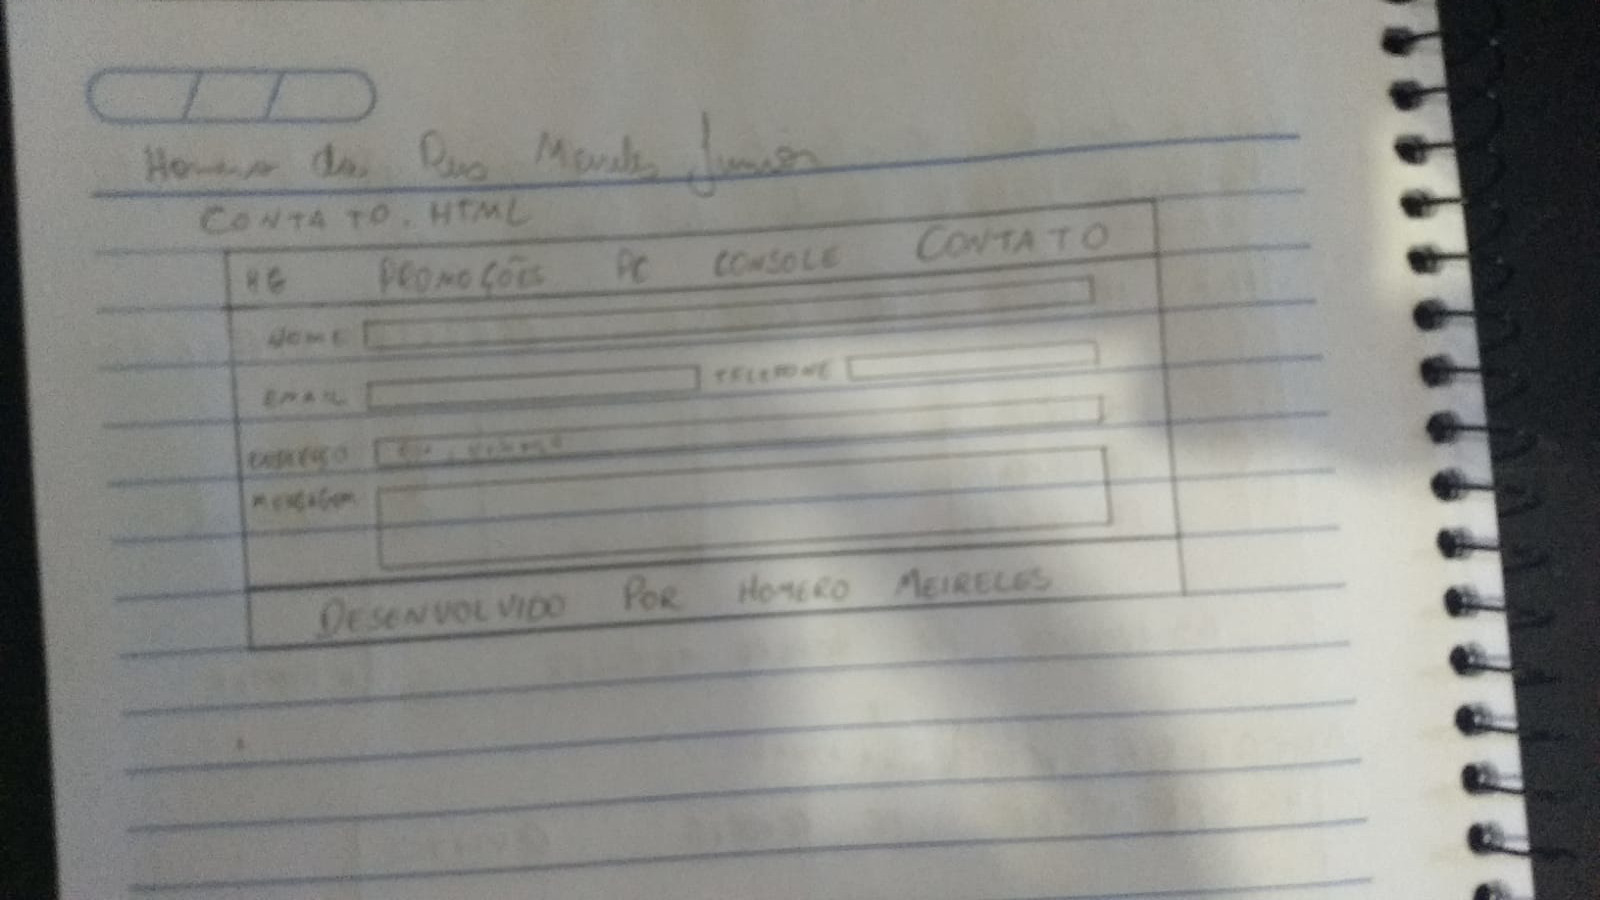 Junior
CONTATO.HTML
HG PROMOÇÕES PC CONSOLE CONTATO
NOME
EMAIL TELEFONE
ENDEREÇO
MENSAGEM
DESENVOLVIDO POR HOMERO MEIRELES